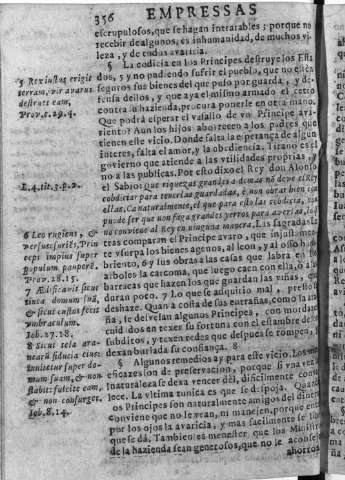 356 EMPRESSAS
escrupulosos, que se hagan intratables: porque no
recebir de algunos, es inhumanidad, de muchos vi-
leza, y de todos avaricia.
§ La codicia en los Principes destruye los Esta-
dos, 5 y no pudiendo sufrir el pueblo, que no esten
seguros sus bienes del que puso por guarda, y de-
fensa dellos, y que aya el mismo armado el cetro
contra su hazienda, procura ponerle en otra mano.
Que podrá esperar el vasallo de vn Principe ava-
riento? Aun los hijos aborrecen a los padres que
tienen este vicio. Donde falta la esperança de algun
interes, falta el amor, y la obediencia. Tirano es el
govierno que atiende a las vtilidades proprias, y
no a las publicas. Por esto dixo el Rey don Alonso
el Sabio: Que riquezas grandes a demas nõ deve al Rey
cobdiciar para tenerlas guardadas, è non obrar bien con
ellas. Ca naturalmente, el que para esto las cobdicia, non
puede ser que non faga grandes yerros para averlas, lo que
no conviene al Rey en ninguna manera. Las sagradas le-
tras comparan el Principe avaro, que injustamen-
te vsurpa los bienes agenos, al leon, y al osso ham-
briento, 6 y sus obras a las casas que labra en los
arboles la carcoma, que luego caen con ella, ò a las
barracas que hazen los que guardan las viñas, que
duran poco. 7 Lo que se adquiriò mal, presto se
deshaze. Quan a costa de sus entrañas, como la ara-
ña, se desvelan algunos Principes, con mordaces
cuidados en texer su fortuna con el estambre de los
subditos, y texen redes que despues se rompen, y
dexan burlada su confiança. 8
§ Algunos remedios ay para este vicio. Los mas
eficazes son de preservacion, porque si vna vez
la naturaleza se dexa vencer dèl, dificilmente conva-
lece. La vltima tunica es que se despoja. Quando
los Principes son naturalmente amigos del dinero
conviene que no le vean, ni manejen, porque entra
por los ojos la avaricia, y mas facilmente se libra
que se dà. Tambien es menester que los Ministros
de la hazienda sean generosos, que no le aconsejen
ahorros
5 Rex iustus erigit
terram, vir avarus
destruet eam,
Prov. c. 29. 4.
L. 4. tit. 3. p. 2.
6 Leo rugiens, &
versus esuriens, Prin-
ceps impius super
populum pauperẽ.
Prov. 28. 15.
7 Ædificavit sicut
tinea domum suã,
& sicut custos fecit
vmbraculum.
Iob. 27. 18.
8 Sicut tela ara-
nearũ fiducia eius:
innitetur super do-
mum suam, & non
stabit: fulciet eam,
& non consurget,
Iob. 8. 14.